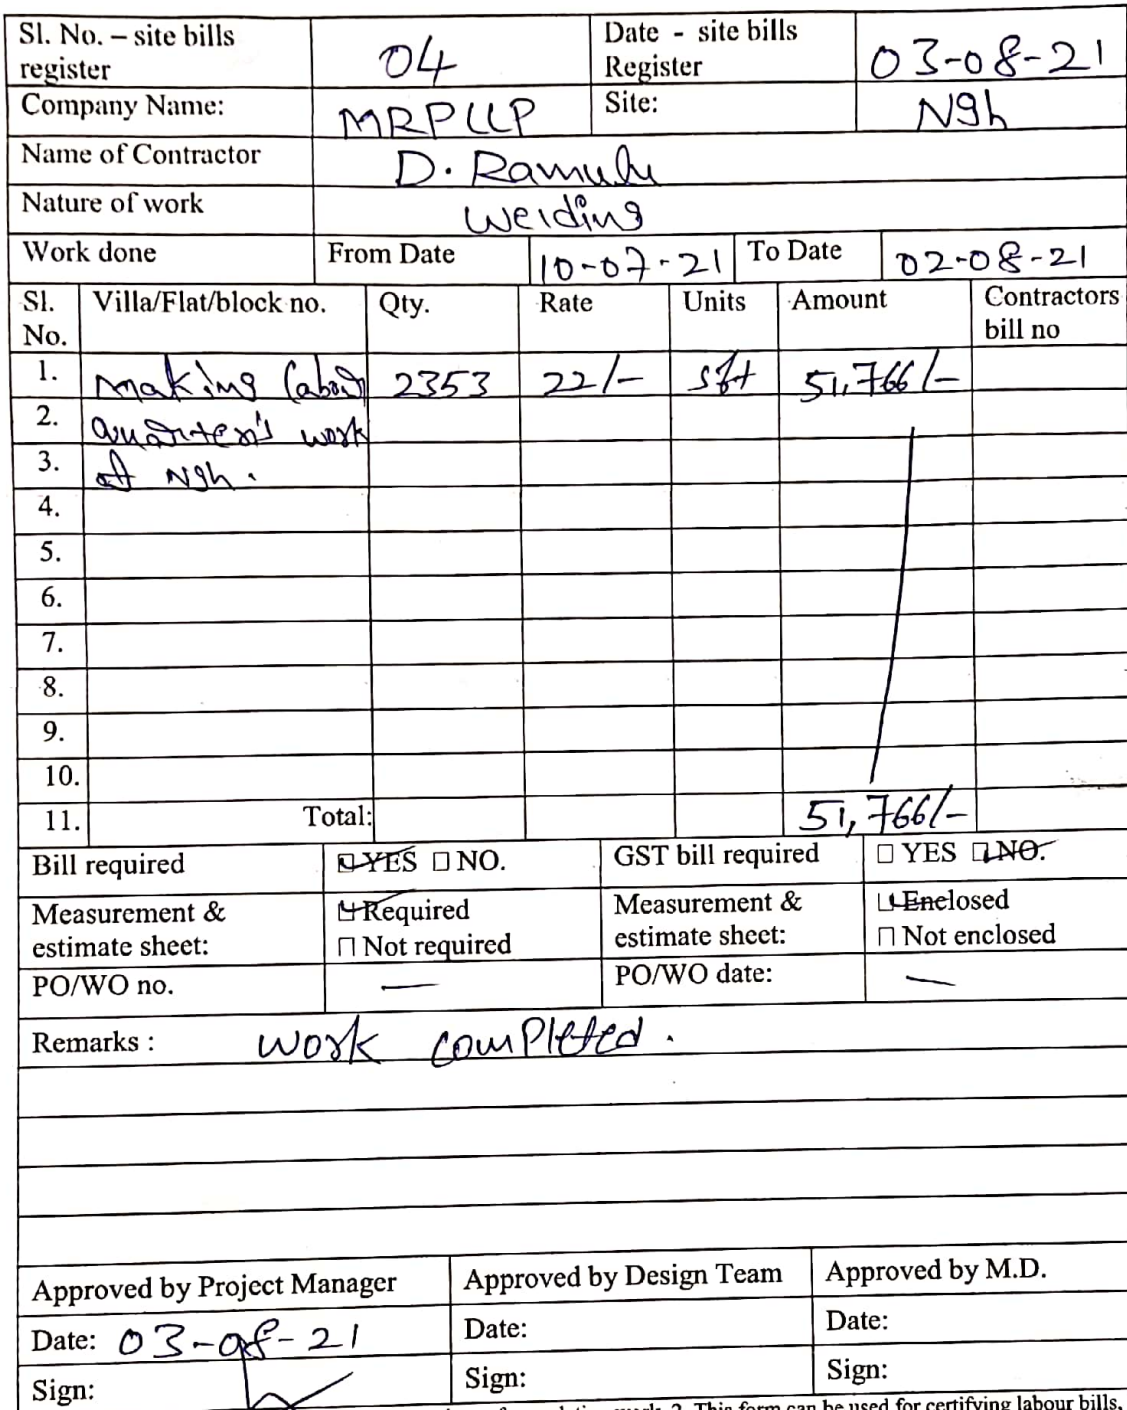 Sl. No. – site bills register 04 Date - site bills Register 03-08-21
Company Name: MRPLLP Site: Ngh
Name of Contractor D. Ramulu
Nature of work Welding
Work done From Date 10-07-21 To Date 02-08-21
Sl. No. Villa/Flat/block no. Qty. Rate Units Amount Contractors bill no
1. making labour 2353 22/- sft 51,766/-
2. quarter's work
3. at Ngh.
4.
5.
6.
7.
8.
9.
10.
11. Total: 51,766/-
Bill required YES NO. GST bill required YES NO.
Measurement & estimate sheet: Required Not required Measurement & estimate sheet: Enclosed Not enclosed
PO/WO no. — PO/WO date: —
Remarks : work completed.
Approved by Project Manager Approved by Design Team Approved by M.D.
Date: 03-08-21 Date: Date:
Sign: Sign: Sign:
2. This form can be used for certifying labour bills,